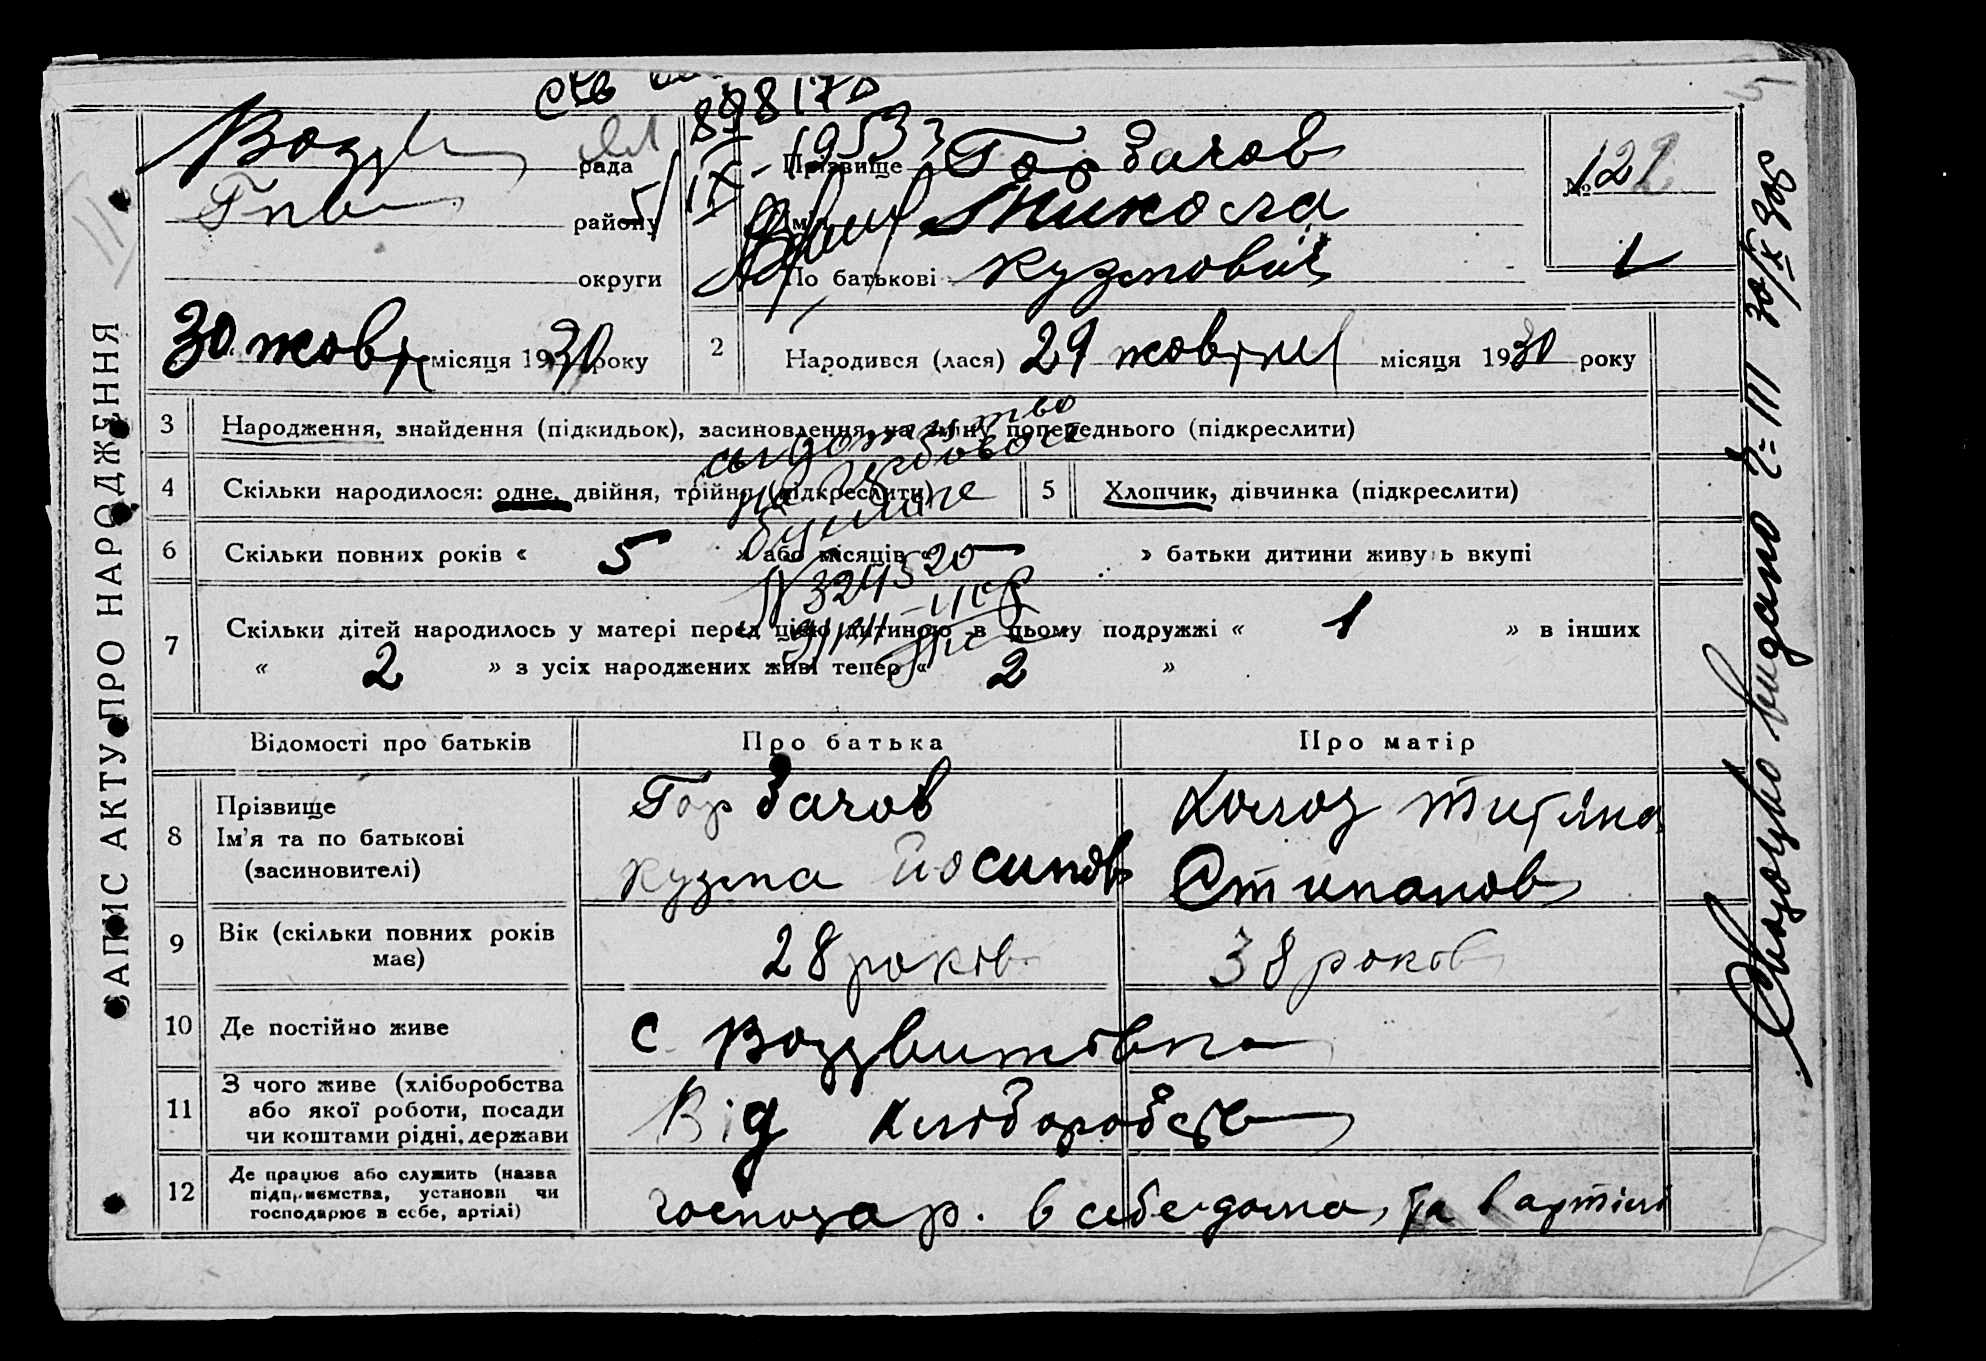 898170
Воздв рада
районy
округи
30 жовт місяця 1930 року
5/IX-1953
Прізвище Горбачов
Ім'я Микола
По батькові Кузмович
№ 122
2 Народився (лася) 29 жовтня місяця 1930 року
ЗАПИС АКТУ ПРО НАРОДЖЕННЯ
3 Народження, знайдення (підкидьок), засиновлення, на зміну попереднього (підкреслити)
4 Скільки народилося: одне, двійня, трійня (підкреслити)
5 Хлопчик, дівчинка (підкреслити)
6 Скільки повних років « 5 » або місяців « » батьки дитини живуть вкупі
7 Скільки дітей народилось у матері перед цією дитиною в цьому подружжі « 1 » в інших
« 2 » з усіх народжених живі тепер « 2 »
на гербовой
бумаге
№ 324520
Відомості про батьків Про батька Про матір
8 Прізвище
Ім'я та по батькові
(засиновителі)
Горбачов
Кузма Йосипов
Титяна
Стипанов
9 Вік (скільки повних років
має)
28 років 38 років
10 Де постійно живе с. Воздвитівка
11 З чого живе (хліборобства
або якої роботи, посади
чи коштами рідні, держави
Від хліборобств
12 Де працює або служить (назва
підприємства, установи чи
господарює в себе, артілі)
господар. в себе дома, та в артілі
видано